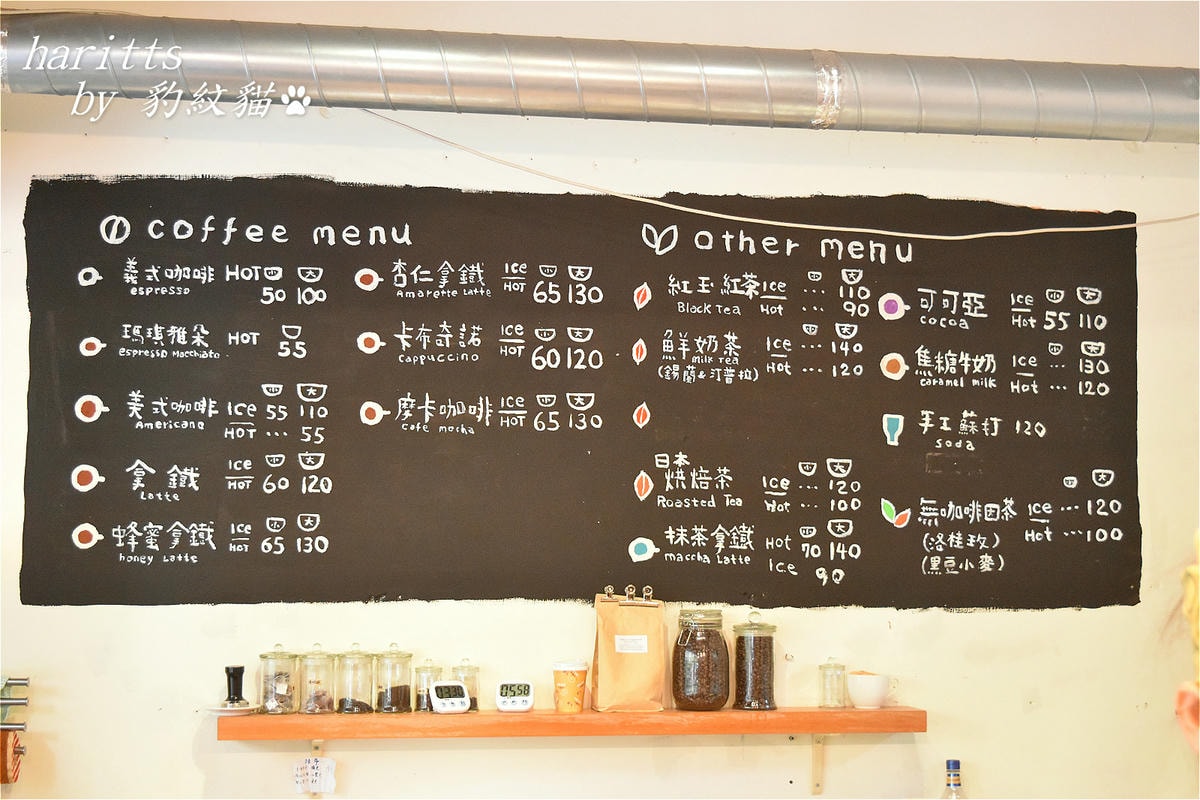 haritts
by 豹紋貓
coffee menu
義式咖啡 HOT 小 大
espresso 50 100
瑪琪雅朵 HOT 55
espresso Macchiato
小 大
美式咖啡 Ice 55 110
Americano HOT ... 55
拿鐵 Ice 小 大
Latte HOT 60 120
蜂蜜拿鐵 Ice 小 大
honey Latte HOT 65 130
杏仁拿鐵 Ice 小 大
Amarette Latte HOT 65 130
卡布奇諾 Ice 小 大
cappuccino HOT 60 120
摩卡咖啡 Ice 小 大
cafe mocha HOT 65 130
other menu
小 大
紅玉紅茶 Ice ... 110
Black Tea Hot ... 90
小 大
鮮奶茶 Ice ... 140
milk tea
(錫蘭&汀普拉) Hot ... 120
日本
小 大
烘焙茶 Ice ... 120
Roasted Tea Hot ... 100
小 大
抹茶拿鐵 Hot 70 140
maccha Latte Ice 90
可可亞 Ice 小 大
cocoa Hot 55 110
小 大
焦糖牛奶 Ice ... 130
caramel milk Hot ... 120
手工蘇打 120
soda
小 大
無咖啡因茶 Ice ... 120
(洛桂玫) Hot ... 100
(黑豆小麥)
05:58